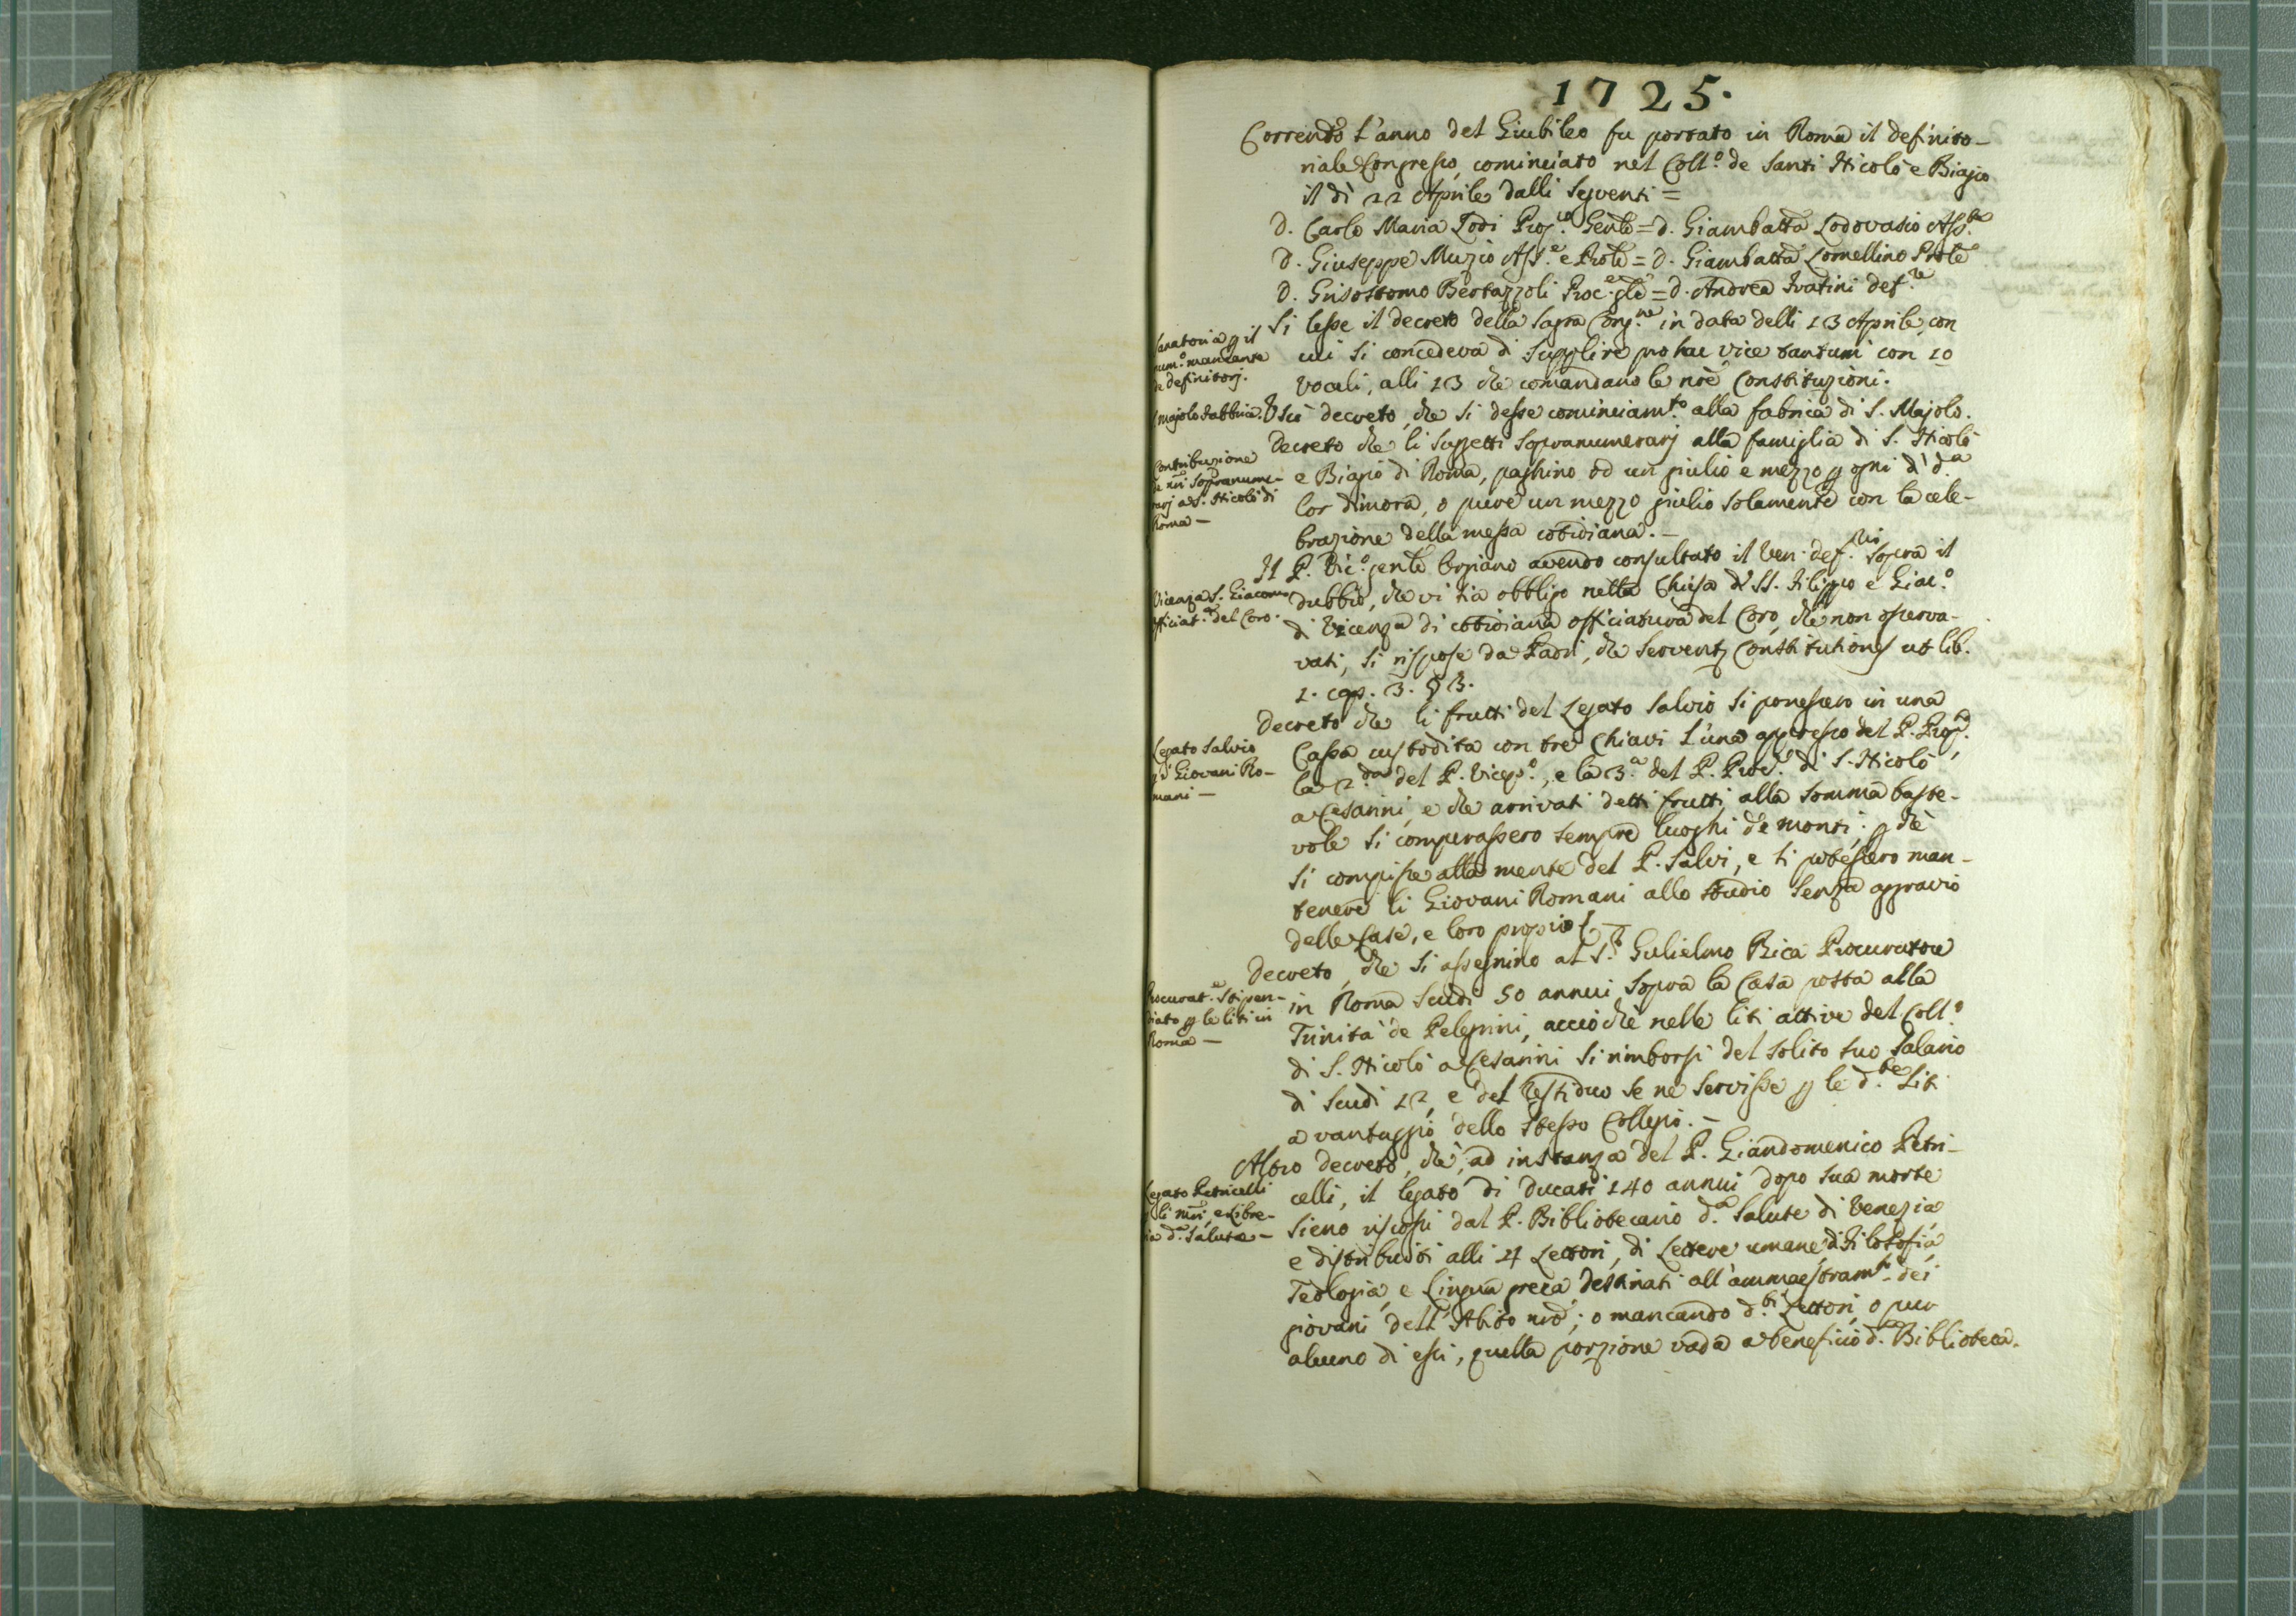 1725.
Correndo l'anno del Giubileo fu portato in Roma il definito-
riale Congresso, cominciato nel Coll.º de Santi Nicolò e Biagio
il dì 22 Aprile dalli seguenti =
D. Carlo Maria Lodi Prep.to Genle = D. Giambatta Lodovasio Ass.te
D. Giuseppe Muzio Ass.e e Prole = D. Giambatta Lomellino Prole
D. Grisostomo Bertazzoli Proc.e gle = D. Andrea Fratini def.re
Sanatoria p il
num.º mancante
de definitorj.
Si lesse il decreto della Sagra Cong.ne in data delli 13 Aprile, con
cui si concedeva di supplire pro hac vice tantum con 10
vocali, alli 13 che comandano le nre Constituzioni.
S. Majolo Fabbrica.
Uscì decreto, che si desse cominciam.to alla fabrica di S. Majolo.
Contribuzione
de nri Sopranume-
rarj a S. Nicolò di
Roma -
Decreto che li suggetti sopranumerarj alla famiglia di S. Nicolò
e Biagio di Roma, paghino od un giulio e mezzo p ogni dì d.a
lor dimora, o pure un mezzo giulio solamente con la cele-
brazione della messa cotidiana. -
Vicenza S. Giacomo
officiat.a del Coro.
Il P. Vic.º genle avendo consultato il Ven. def.rio sopra il
dubbio, che vi sia obbligo nella Chiesa di SS. Filippo e Giac.º
di Vicenza di cotidiana officiatura del Coro, che non osserva-
vasi, si rispose da Padri, che serventur Constitutiones ut lib.
1. cap. 3. § 3.
Legato Salvio
p i Giovani Ro-
mani -
Decreto che li frutti del Legato Salvio si ponessero in una
Cassa custodita con tre Chiavi l'una appresso del P. Prep.to,
la 2.da del P. Vicep.º, e la 3.a del P. Proc.e di S. Nicolò
a Cesarini, e che arrivati detti frutti alla somma baste-
vole si comperassero sempre luoghi de monti; p che
si compisse alla mente del P. Salvi, e si potessero man-
tenere li Giovani Romani allo studio senza aggravio
delle Case, e loro proprio. -
Procurat.e stipen-
diato p le liti in
Roma -
Decreto, che si assegnino al S.r Gulielmo Rica Procuratore
in Roma scudi 50 annui sopra la Casa posta alla
Trinità de Pelegrini, acciochè nelle liti attive del Coll.º
di S. Nicolò a Cesarini si rimborsi del solito suo salario
di scudi 12, e del residuo se ne servisse p le d.te Liti
a vantaggio dello stesso Collegio. -
Legato Petricelli
p li nri, e Libre-
ria d.a Salute -
Altro decreto, che, ad instanza del P. Giandomenico Petri-
celli, il legato di Ducati 140 annui dopo sua morte
sieno riscossi dal P. Bibliotecario d.a Salute di Venezia
e distribuiti alli 4 Lettori, di Lettere umane, di Filosofia,
Teologia, e Lingua greca destinati all'ammaestram.to dei
giovani dell'Abito nro; o mancando d.ti Lettori, o pur
alcuno di essi, quella porzione vada a beneficio d.a Biblioteca.